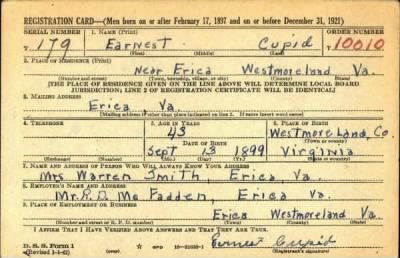 REGISTRATION CARD—(Men born on or after February 17, 1897 and on or before December 31, 1921)
SERIAL NUMBER 1. NAME (Print) ORDER NUMBER
T 179 Earnest Cupid T 10010
(First) (Middle) (Last)
2. PLACE OF RESIDENCE (Print)
Near Erica Westmoreland Va.
(Number and street) (Town, township, village, or city) (County) (State)
[THE PLACE OF RESIDENCE GIVEN ON THE LINE ABOVE WILL DETERMINE LOCAL BOARD
JURISDICTION; LINE 2 OF REGISTRATION CERTIFICATE WILL BE IDENTICAL]
3. MAILING ADDRESS
Erica, Va.
[Mailing address if other than place indicated on line 2. If same insert word same]
4. TELEPHONE 5. AGE IN YEARS 6. PLACE OF BIRTH
43 Westmoreland, Co.
DATE OF BIRTH (Town or county)
Sept 13 1899 Virginia
(Exchange) (Number) (Mo.) (Day) (Yr.) (State or country)
7. NAME AND ADDRESS OF PERSON WHO WILL ALWAYS KNOW YOUR ADDRESS
Mrs Warren Smith Erica, Va.
8. EMPLOYER'S NAME AND ADDRESS
Mr. R. D. Mc Fadden, Erica, Va.
9. PLACE OF EMPLOYMENT OR BUSINESS
Erica Westmoreland Va.
(Number and street or R. F. D. number) (Town) (County) (State)
I AFFIRM THAT I HAVE VERIFIED ABOVE ANSWERS AND THAT THEY ARE TRUE.
D. S. S. Form 1
(Revised 1-1-42) (over) GPO 16—21630-1 Earnest Cupid
(Registrant's signature)